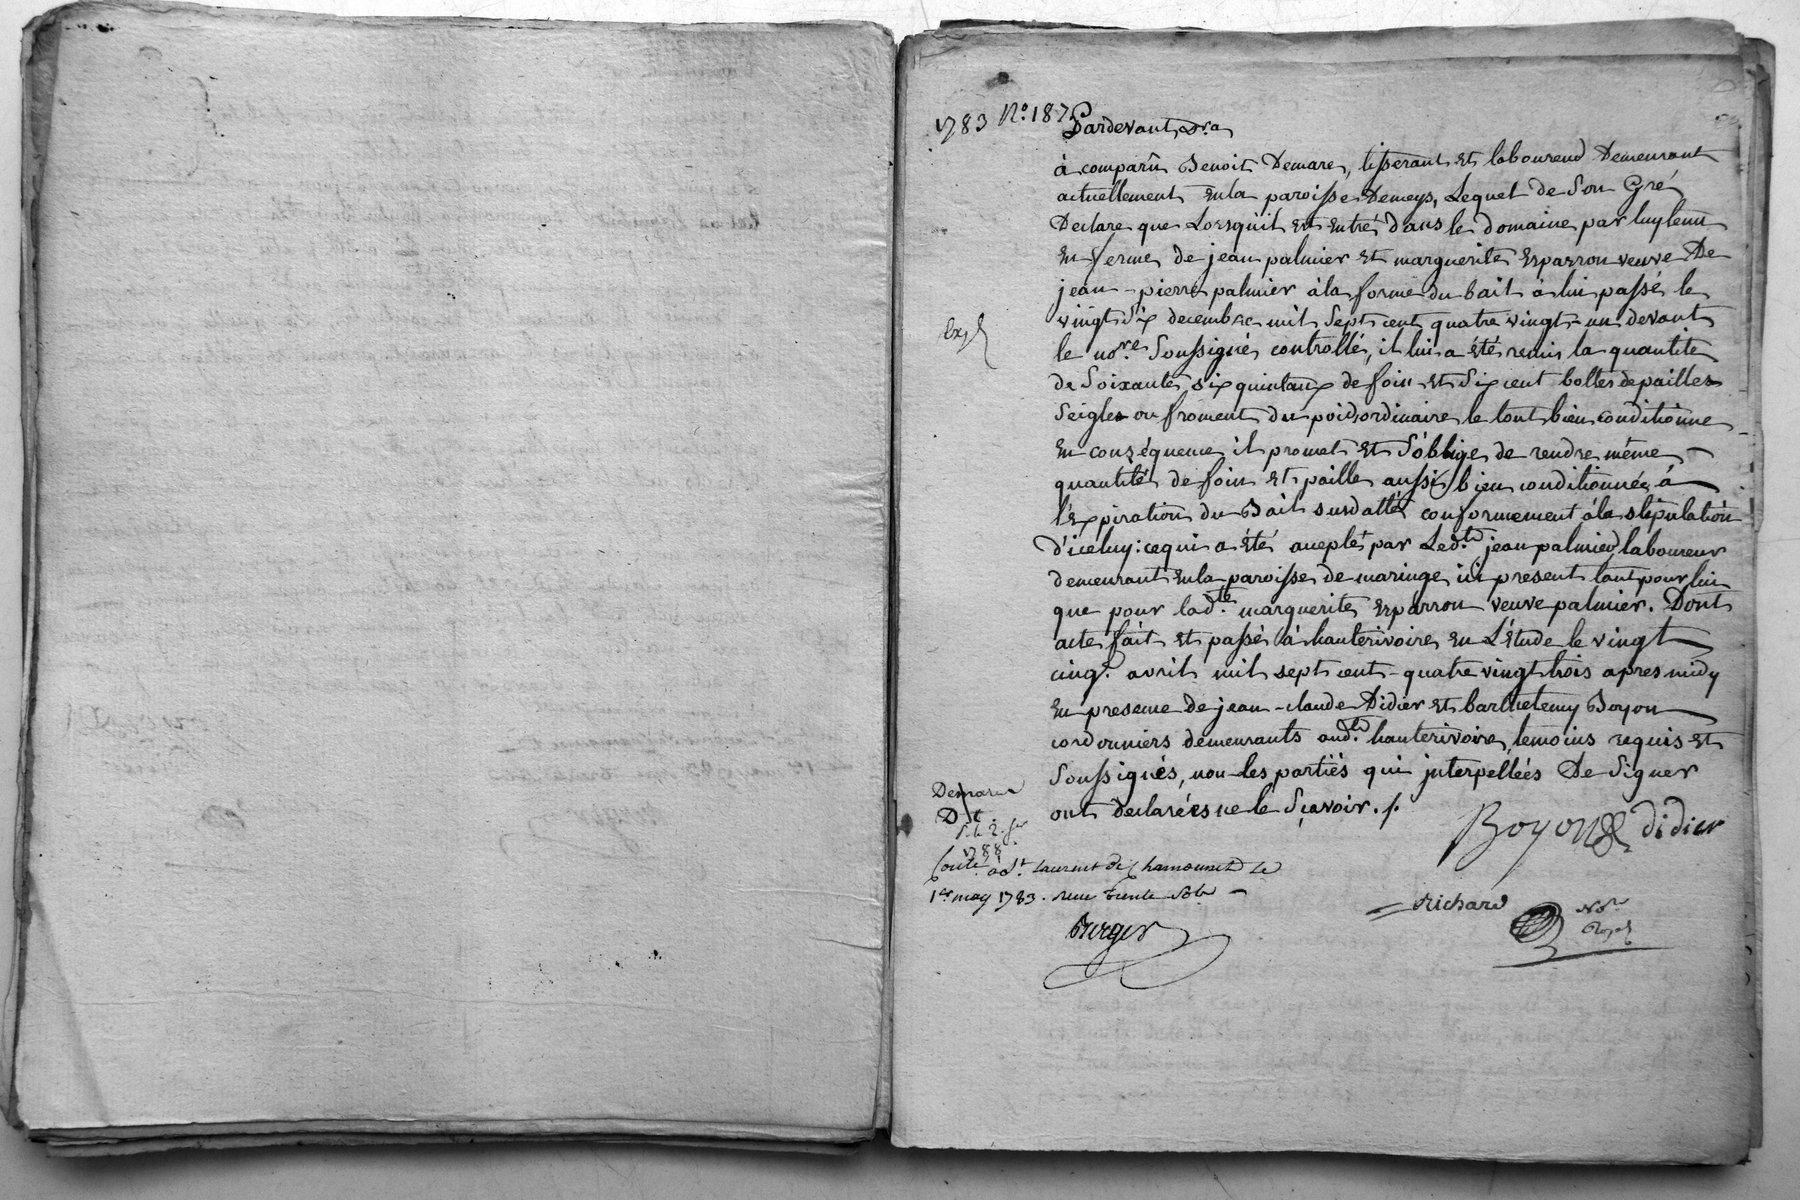 1783 N.º 187
Pardevant &ra
à comparû Benoit Demare, tisserant et laboureur Demeurant
actuellement en la paroisse Demeys, Lequel de Son Gré
Declare que Lorsqu'il est entré dans le domaine par luy tenu
en ferme de jean palmier et marguerite Esparron veuve De
jean-pierre palmier à la forme du bail à lui passé le
vingt Six decembre mil Sept cent quatre vingt-un devant
le no.re Soussigné controllé, il lui a été remis la quantité
de Soixante six quintaux de foin et Six cent bottes de pailles
Seigle ou froment du poid ordinaire le tout bien conditionné
en conséquence il promet et S'oblige de rendre même
quantité de foin et paille aussi bien conditionnée à
l'expiration du Bail susdatté conformement à la stipulation
d'iceluy: ce qui a été accepté par Led.t jean palmier, laboureur
demeurant en la paroisse de maringe ici present tant pour lui
que pour lad.te marguerite Esparron veuve palmier. Dont
acte fait et passé à hauterivoire en L'étude le vingt
cinq. avril mil sept cent-quatre vingt trois apres midy
en presence de jean-claude Didier et barthelemy Boyon
cordonniers demeurants aud.t hauterivoire, temoins requis et
Soussignés, non les partiés qui jnterpellées De Signer
ont declarées ne le Sçavoir. /.
Demare
Boyon didier
1788
Conté. à St. Laurent de Chamousset Le
1er may 1783. reçu trente sols
Richard Nore Royal
Berger